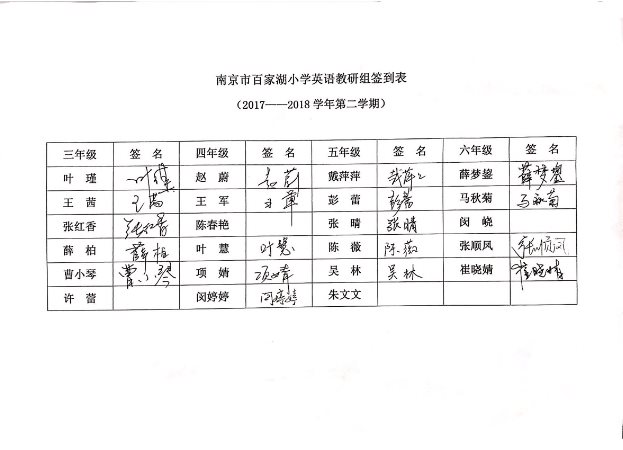 南京市百家湖小学英语教研组签到表
（2017——2018 学年第二学期）
三年级 签 名 四年级 签 名 五年级 签 名 六年级 签 名
叶 瑾 叶瑾 赵 蔚 戴萍萍 戴萍萍 薛梦鋆 薛梦鋆
王 茜 王茜 王 军 王军 彭 蕾 彭蕾 马秋菊 马秋菊
张红香 张红香 陈春艳 张 晴 张晴 闵 峣
薛 柏 薛柏 叶 慧 叶慧 陈 薇 陈薇 张顺凤 张顺凤
曹小琴 曹小琴 项 婧 项婧 吴 林 吴林 崔晓婧 崔晓婧
许 蕾 闵婷婷 闵婷婷 朱文文